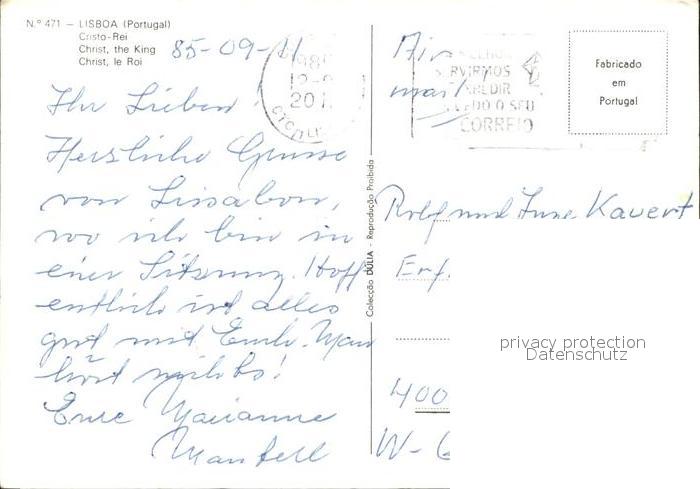 N.º 471 – LISBOA (Portugal)
Cristo-Rei
Christ, the King
Christ, le Roi
85-09-11
Ihr Lieben
Herzliche Grüsse
von Lissabon,
wo ich bin in
einer Sitzung. Hoff
entlich ist alles
gut mit Euch. Man
hört nichts!
Eure Marianne
Air
mail
SERVIRMOS
TUDO O SEU
CORREIO
Fabricado
em
Portugal
Colecção DÚLIA - Reprodução Proibida
Rolf und Inne Kauert
Erf.
400
W-G
privacy protection
Datenschutz